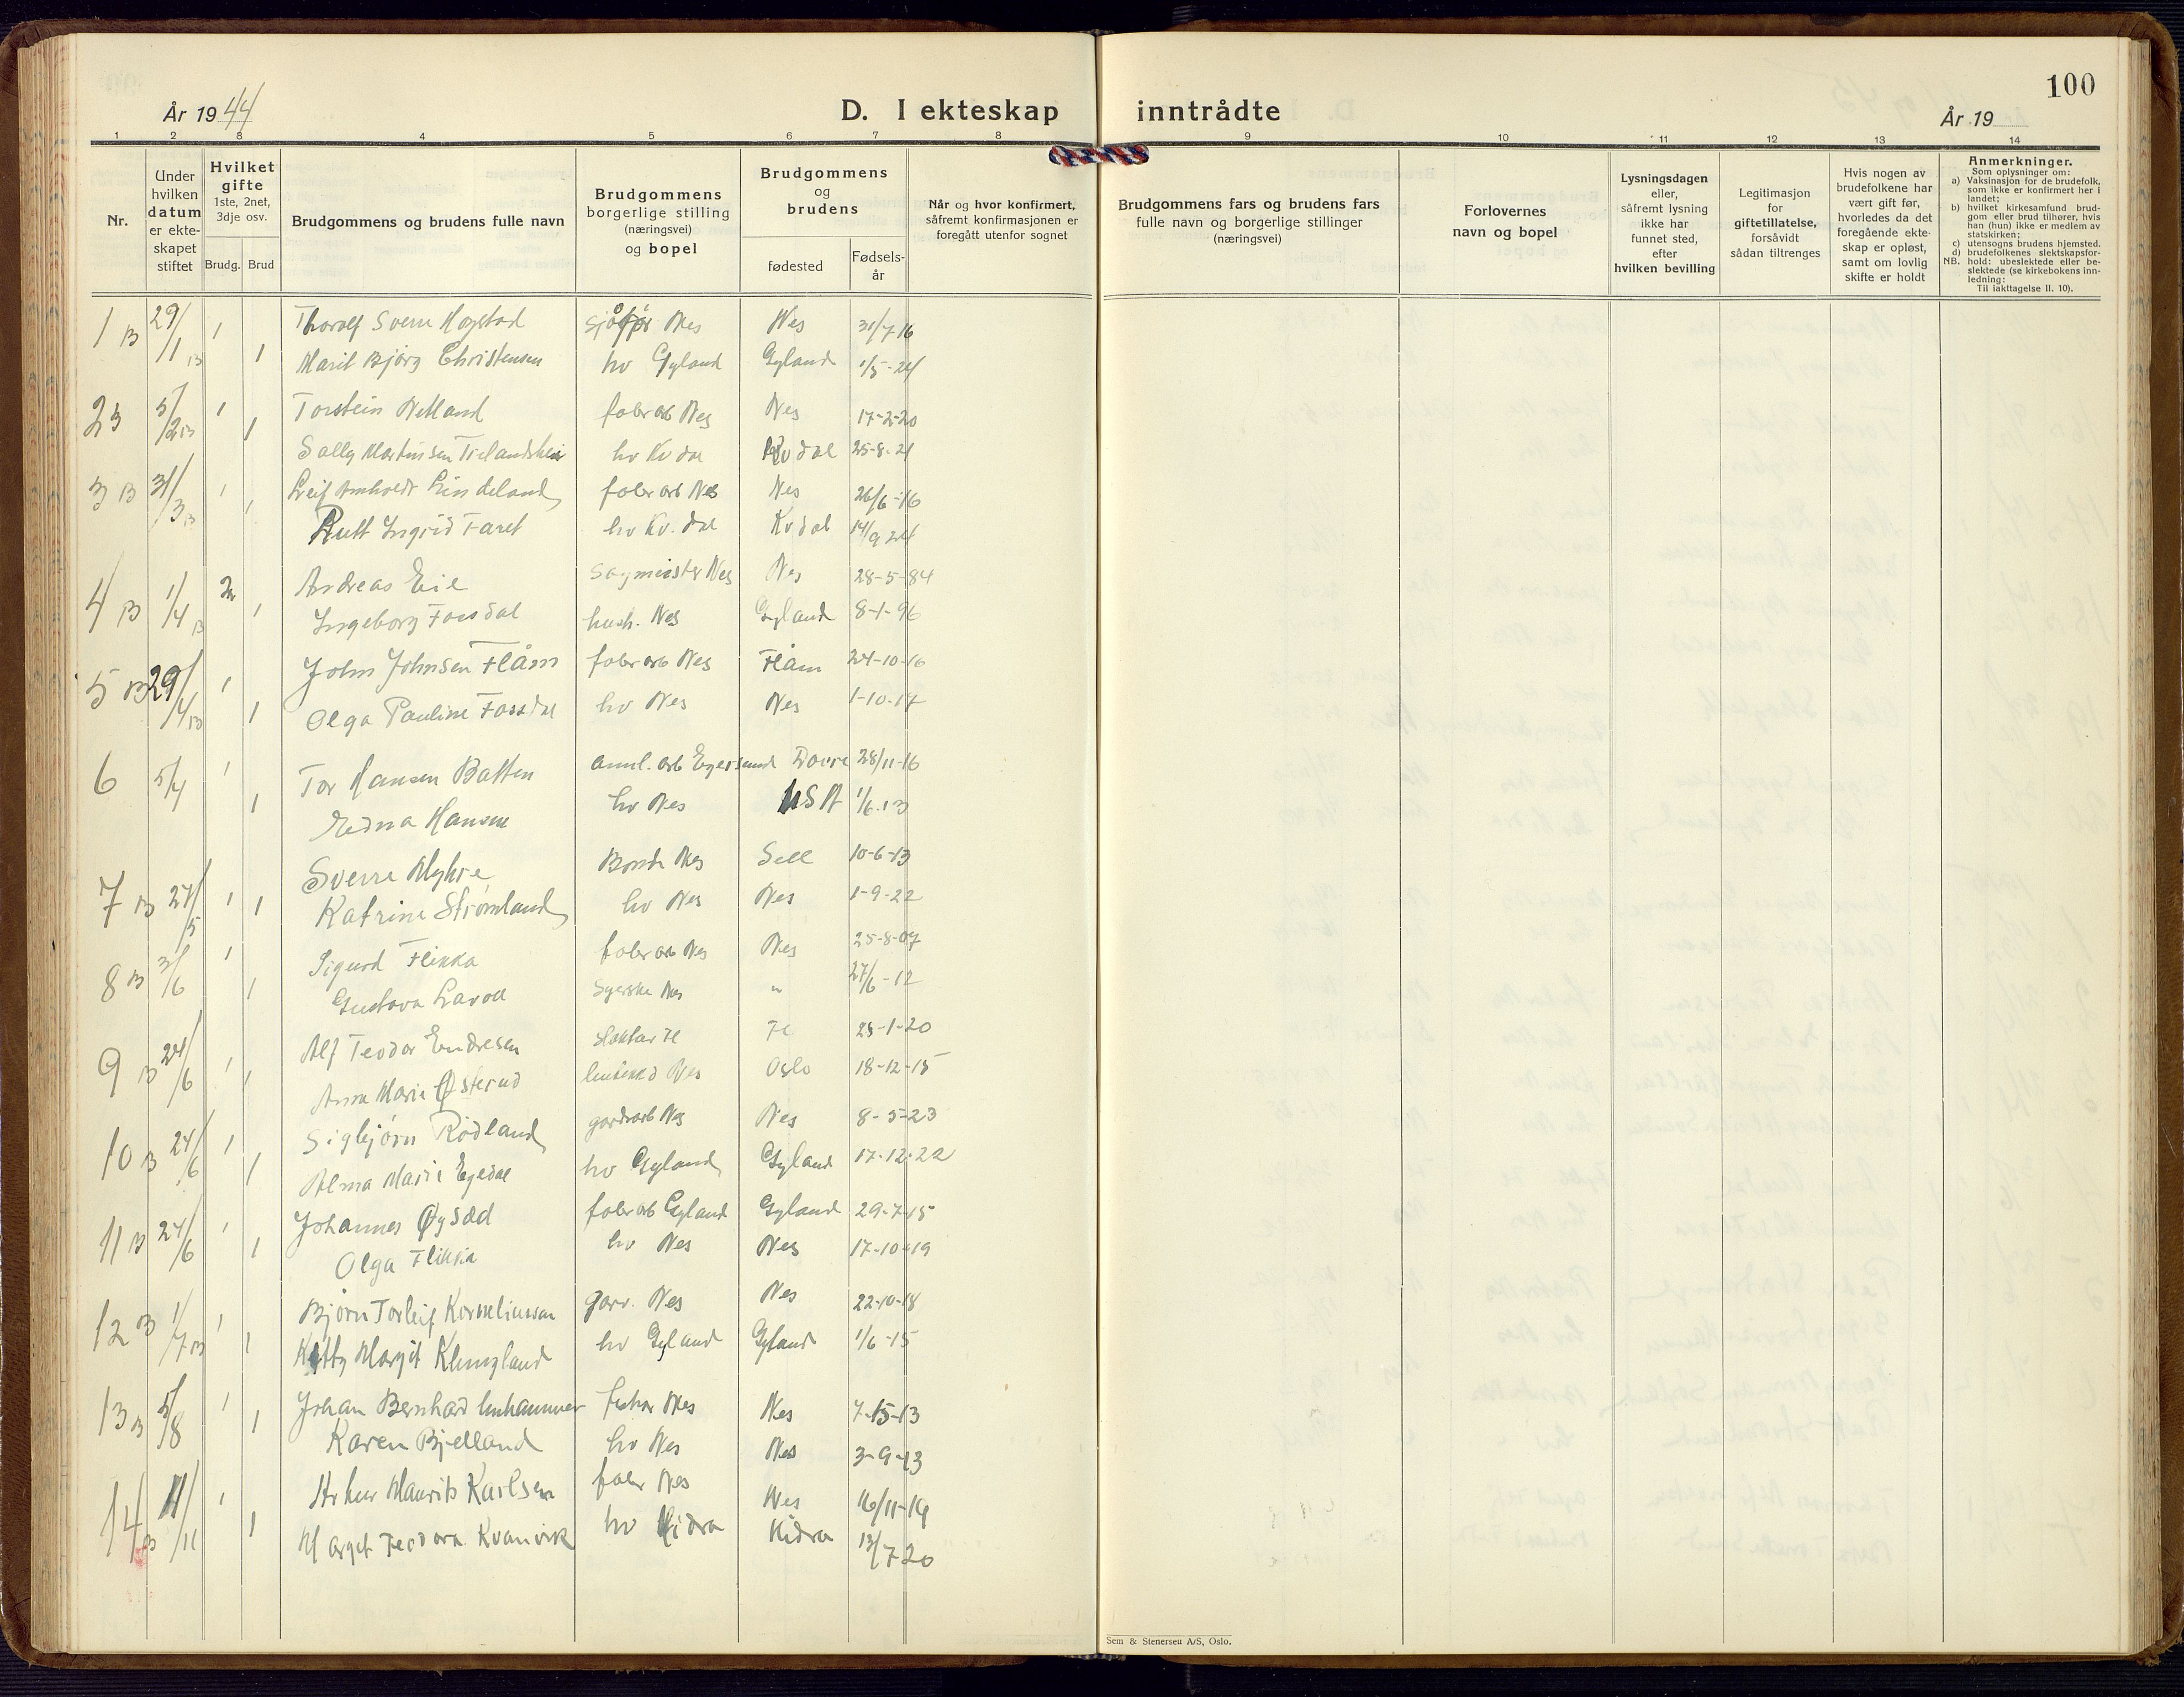 100
År 1944
D. I ekteskap inntrådte
År 19
1 2 3 4 5 6 7 8 9 10 11 12 13 14
Nr.
Under hvilken datum er ekte-skapet stiftet
Hvilket gifte 1ste, 2net, 3dje osv.
Brudg. Brud
Brudgommens og brudens fulle navn
Brudgommens borgerlige stilling (næringsvei) og bopel
Brudgommens og brudens
fødested
Fødsels-år
Når og hvor konfirmert, såfremt konfirmasjonen er foregått utenfor sognet
Brudgommens fars og brudens fars fulle navn og borgerlige stillinger (næringsvei)
Forlovernes navn og bopel
Lysningsdagen eller, såfremt lysning ikke har funnet sted, efter hvilken bevilling
Legitimasjon for giftetillatelse, forsåvidt sådan tiltrenges
Hvis nogen av brudefolkene har vært gift før, hvorledes da det foregående ekte-skap er opløst, samt om lovlig skifte er holdt
Anmerkninger.
Som oplysninger om:
a) Vaksinasjon for de brudefolk, som ikke er konfirmert her i landet;
b) hvilket kirkesamfund brud-gom eller brud tilhører, hvis han (hun) ikke er medlem av statskirken;
c) utensogns brudens hjemsted.
d) brudefolkenes slektskapsfor-hold: ubeslektede eller be-slektede (se kirkebokens inn-ledning:
NB.
Til iakttagelse II. 10).
1 B 29/1 B 1 Thoralf Sverre Høgstad sjåfør Nes Nes 31/7 16
1 Marit Bjørg Christensen hv Gyland Gyland 1/5-24
2 B 5/2 B 1 Torstein Netland fabr arb Nes Nes 17-2-20
1 Sally Martinsen hv Kvdal Kvdal 25-8-21
3 B 31/3 B 1 Leif Arnholdt Lindeland fabr arb Nes Nes 26/6-16
1 Rutt Ingrid Faret hv Kv.dal Kvdal 14/9 24
4 B 1/4 B 2n Andreas Eie Sagmeister Nes Nes 28-5-84
1 Ingeborg Fossdal hush. Nes Gyland 8-1-96
5 B 29/4 B 1 John Johnsen Flåm fabr arb Nes Flåm 24-10-16
1 Olga Pauline Fossdal hv Nes Nes 1-10-17
6 5/4 1 Tor Hansen Batten anl. arb Egersund Dovre 28/11-16
1 Edna Hansen hv Nes USA 1/6.13
7 B 27/5 1 Sverre Myhre Bonde Nes Sell 10-6-13
1 Katrine Strømland hv Nes Nes 1-9-22
8 B 3/6 1 Sigurd Flikka fabr arb Nes Nes 25-8-07
1 Gustava Lavoll Syerske Nes " 27/6-12
9 B 24/6 1 Alf Teodor Endresen slakter Fl Fl 25-1-20
1 Anna Marie Østerud Nes Oslo 18-12-15
10 B 24/6 1 Sigbjørn Rødland gardsarb Nes Nes 8-5-23
1 Alma Marie Egedal hv Gyland Gyland 17-12-22
11 B 24/6 1 Johannes Øysæd fabr arb Gyland Gyland 29-7-15
1 Olga Flikka hv Nes Nes 17-10-19
12 B 1/7 B 1 Bjørn Torleif Korneliussen garv. Nes Nes 22-10-18
1 Kitty Margit Klungland hv Gyland Gyland 1/6-15
13 B 5/8 1 Johan Bernhard Unhammer Nes Nes 7-15-13
1 Karen Bjelland hv Nes Nes 3-9-13
14 B 11/11 1 Arthur Maurits Karlsen fabr Nes Nes 16/11-19
1 Margit Teodora Kvanvik hv Hidra Hidra 13/7 20
Sem & Stenersen A/S, Oslo.